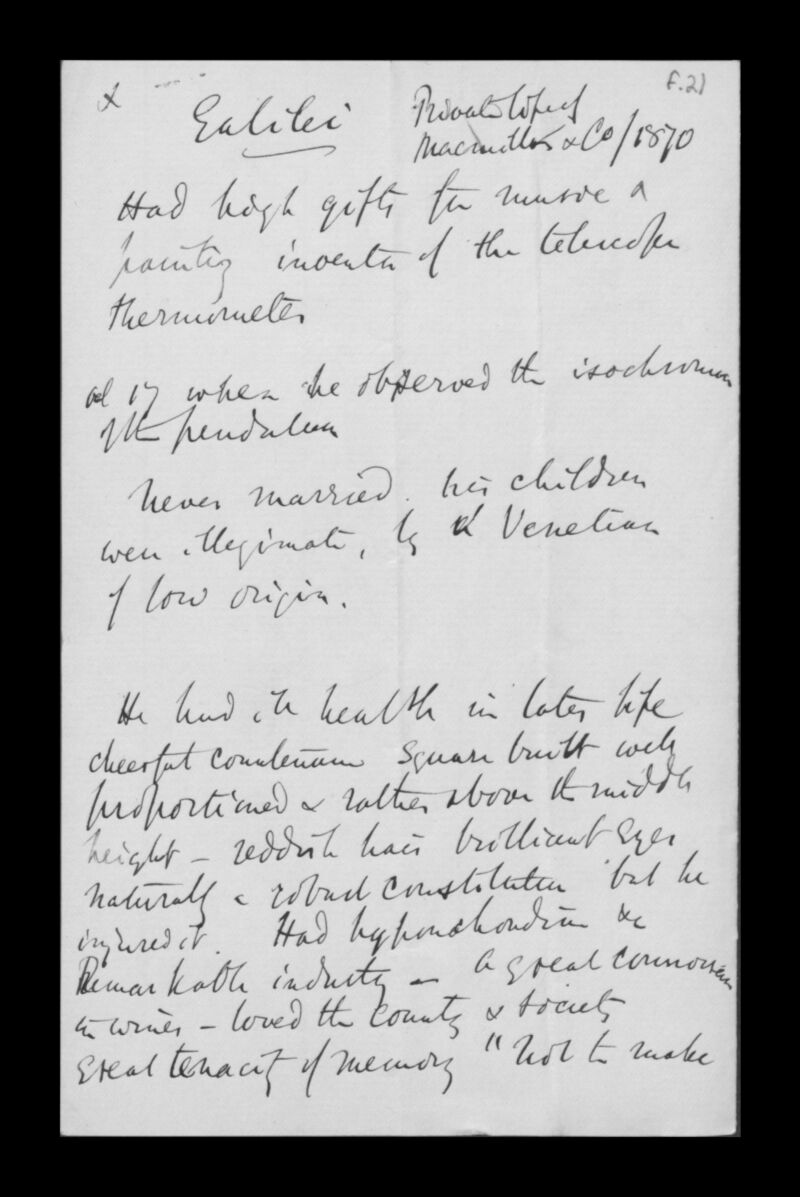 x
f.21
Galilei
Private life of
Macmillan & Co/1870
Had high gifts for music &
painting inventor of the telescope
thermometer
act 17 when he observed the isochronism
of the pendulum
Never married. his children
were illegimate, by a Venetian
of low origin.
He had ill health in later life
cheerful countenance square built well
proportioned & rather above the middle
height – reddish hair brilliant eyes
naturally a robust constitution but he
injured it. Had hypochondria &c
Remarkable industry – A great connoisseur
in wines – loved the country & society
great tenacity of memory "not to make